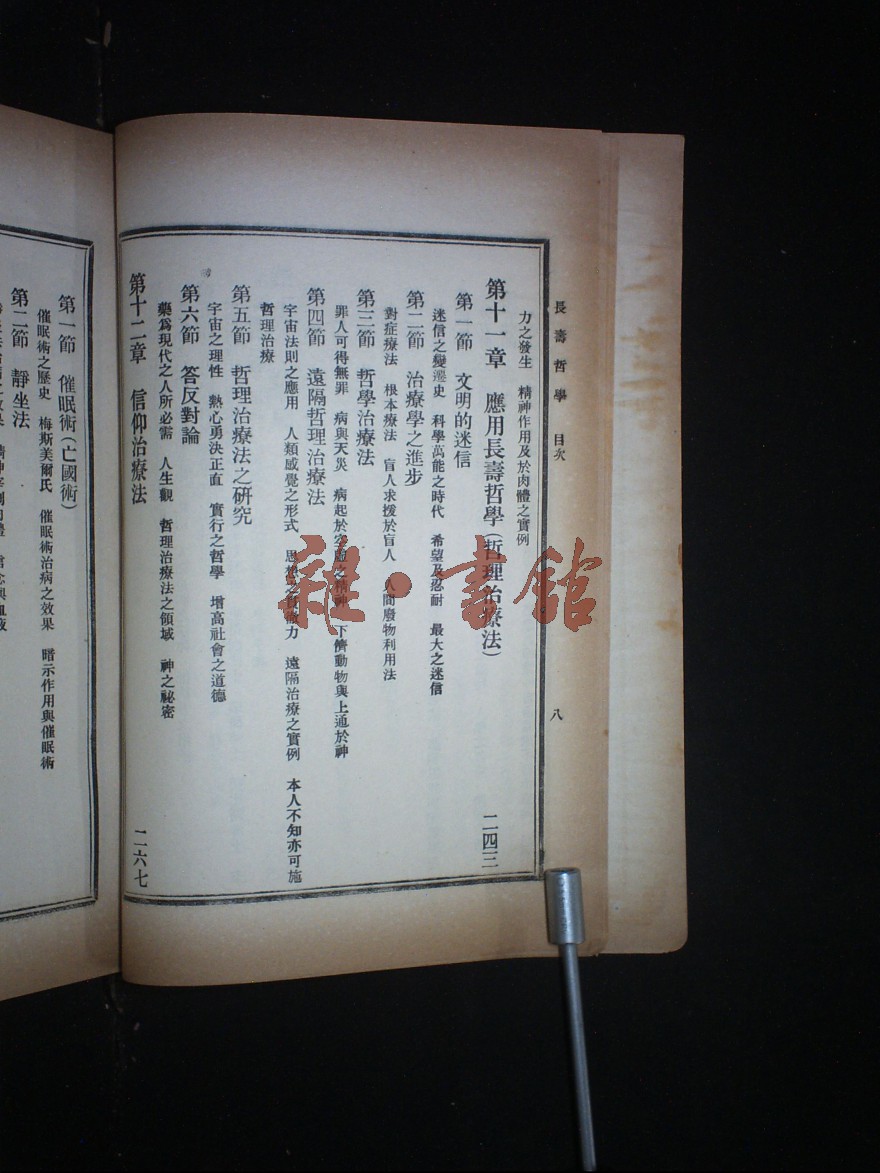 長壽哲學 目次 八
力之發生 精神作用及於肉體之實例
第十一章 應用長壽哲學(哲理治療法) 二四三
第一節 文明的迷信
迷信之變遷史 科學萬能之時代 希望及忍耐 最大之迷信
第二節 治療學之進步
對症療法 根本療法 盲人求援於盲人 人間廢物利用法
第三節 哲學治療法
罪人可得無罪 病與天災 病起於 之精神 下儕動物與上通於神
第四節 遠隔哲理治療法
宇宙法則之應用 人類感覺之形式 思想之 力 遠隔治療之實例 本人不知亦可施
哲理治療
第五節 哲理治療法之研究
宇宙之理性 熱心勇決正直 實行之哲學 增高社會之道德
第六節 答反對論
藥爲現代之人所必需 人生觀 哲理治療法之領域 神之祕密
第十二章 信仰治療法 二六七
第一節 催眠術(亡國術)
催眠術之歷史 梅斯美爾氏 催眠術治病之效果 暗示作用與催眠術
第二節 靜坐法
雜·書館